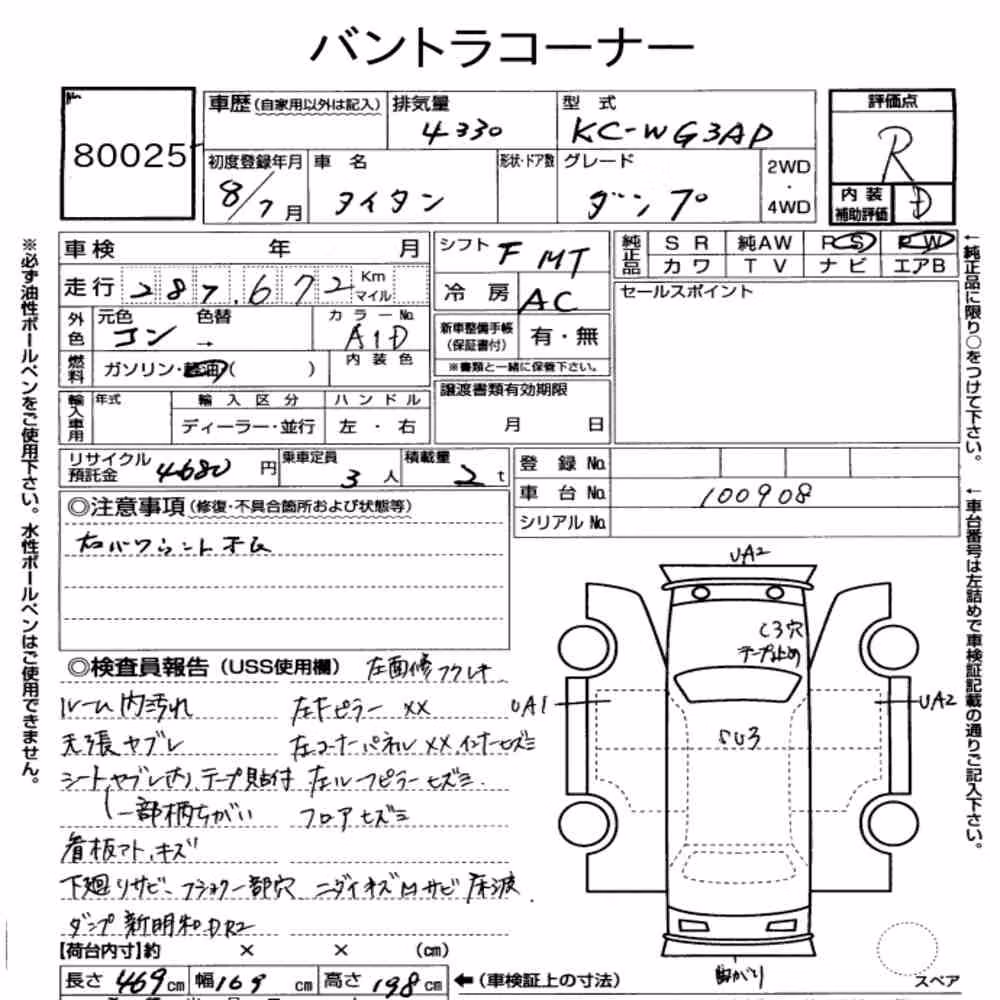 バントラコーナー
No.
80025
車歴(自家用以外は記入) 排気量 4330
型式 KC-WG3AD
評価点 R
内装補助評価 D
初度登録年月 8/7月
車名 タイタン
形状・ドア数
グレード ダンプ
2WD・4WD
車検 年 月
走行 287.672 Km マイル
シフト F MT
冷房 AC
純正品 SR 純AW PS PW
カワ TV ナビ エアB
セールスポイント
外色 元色 コン 色替 → カラーNo. A1D
燃料 ガソリン・軽油( ) 内装色
新車整備手帳(保証書付) 有・無
※書類と一緒に保管下さい。
輸入車用 年式 輸入区分 ハンドル
ディーラー・並行 左・右
譲渡書類有効期限
月 日
リサイクル預託金 4680円 乗車定員 3人 積載量 2t
登録No.
車台No. 100908
シリアルNo.
◎注意事項(修復・不具合箇所および状態等)
◎検査員報告(USS使用欄) 左面修フクレ有
ルーム内汚れ 左Fピラー XX
天張ヤブレ 左コーナーパネルXXインナーヒズミ
シートヤブレ有り、テープ貼付 左ルーフピラーヒズミ.
一部柄ちがい フロアヒズミ
看板アト、キズ
下廻りサビ、フラクター部穴 ニダイオズ凹サビ 床波
ダンプ 新明和DR2
【荷台内寸】約 × × (cm)
長さ 469cm 幅 169cm 高さ 198cm ←(車検証上の寸法)
UA2
C3穴
テープ止め
UA1
UA2
SU3
スペア
※必ず油性ボールペンをご使用下さい。水性ボールペンはご使用できません。
←純正品に限り○をつけて下さい。
←車台番号は左詰めで車検証記載の通りご記入下さい。